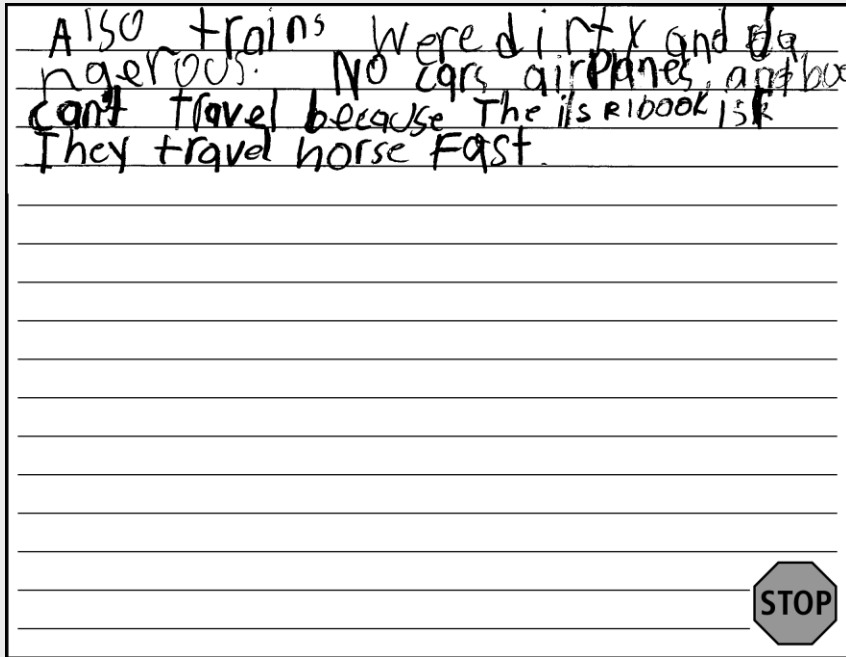 Also trains were dirty and da
ngerous. No cars, airplanes, and
can't travel because The
They travel horse Fast.
STOP